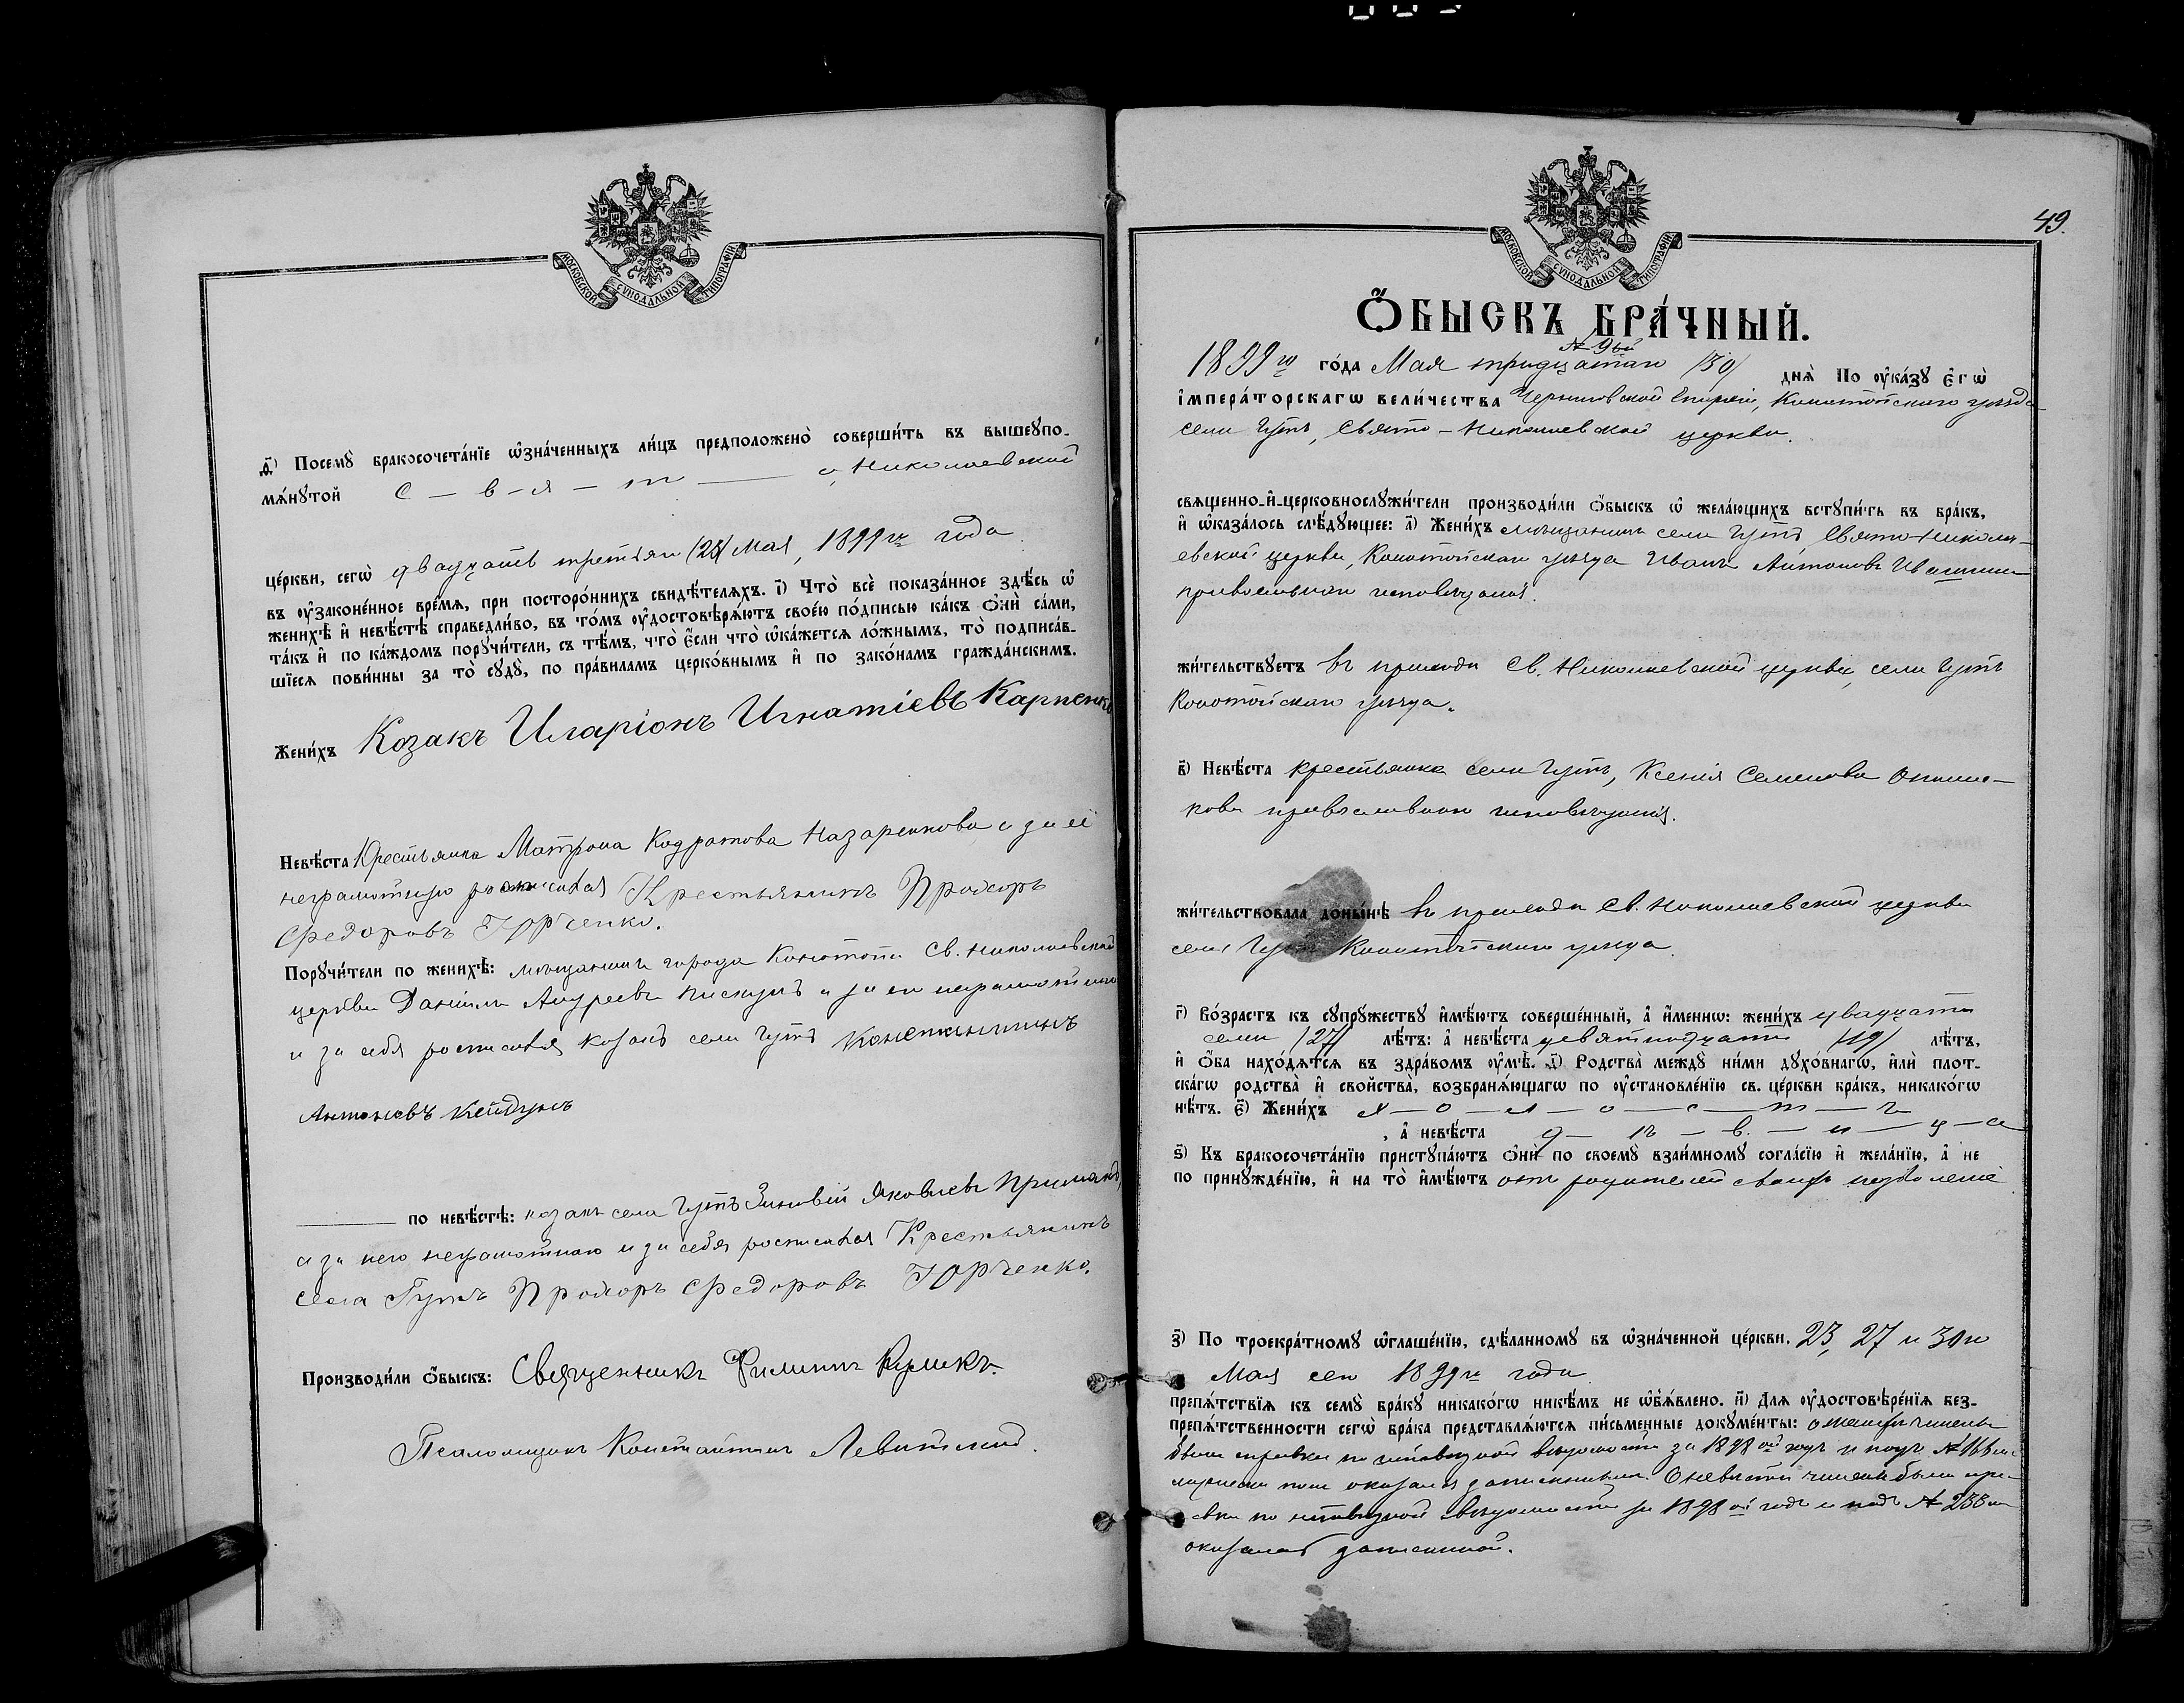 МОСКОВСКОЙ СѴНОДАЛЬНОЙ ТИПОГРАФІИ
д҃і) Посемꙋ̀ бракосочета́нїе ѡ҆зна́ченныхъ ли́цъ предположено̀ соверши́ть въ вышеꙋпо-
мѧ́нꙋтой С – в – я – т — о, Николаевской
це́ркви, сегѡ̀ двадцать третьяго (23) Мая, 1899 го года
въ ᲂу҆зако́не́нное вре́мѧ, при посторо́ннихъ свидѣ́телѧхъ. і҃) Что̀ всѐ показа́нное здѣ́сь ѡ҆
женихѣ̀ и҆ невѣ́стѣ справедли́во, въ то́мъ ᲂу҆достовѣрѧ́ютъ свое́ю по́дписью ка́къ ѻ҆нѝ са́ми,
та́къ и҆ по ка́ждомъ порꙋчи́тели, съ тѣ́мъ, что̀ є҆́сли что̀ ѡ҆ка́жетсѧ ло́жнымъ, то̀ подписа́в-
шїесѧ пови́нны за то̀ сꙋдꙋ̀, по пра́виламъ церко́внымъ и҆ по зако́намъ гражда́нскимъ.
Жени́хъ Козакъ Иларіонъ Игнатіевъ Карпенко
Невѣ́ста Крестьянка Матрона Кодратова Назаренкова а за её
неграмотную росписался Крестьянинъ Прохоръ
Федоровъ Юрченко.
Порꙋчи́тели по женихѣ̀: мещанинъ города Конотопа Св. Николаевской
церкви Даніилъ Андреевъ Пискунъ а за его неграмотнаго
и за себя росписался козакъ села Гутъ
Антоновъ Кейдунъ
по невѣ́стѣ: козакъ села Гутъ Зиновій Яковлевъ Примакъ,
а за него неграмотнаго и за себя росписался Крестьянинъ
села Гутъ Прохоръ Федоровъ Юрченко.
Производи́ли ѻ҆́быскъ: Священникъ Филиппъ Куликъ.
Псаломщикъ Константинъ Левитскій.
49.
МОСКОВСКОЙ СѴНОДАЛЬНОЙ ТИПОГРАФІИ
Ѻ҆́БЫСКЪ БРА́ЧНЫЙ.
№ 9ый
1899 го го́да Мая тридцатаго /30/ днѧ̀ По ᲂу҆ка́зꙋ є҆гѡ̀
і҆мпера́торскагѡ вели́чества Черниговской Епархіи, Конотопскаго уезда
села Гутъ, Свято-Николаевской церкви.
свѧщенно-и҆-церковнослꙋжи́тели производи́ли ѻ҆́быскъ ѡ҆ жела́ющихъ встꙋпи́ть въ бра́къ,
и҆ ѡ҆каза́лось слѣ́дꙋющее: а҃) Жени́хъ мещанинъ села Гутъ Свято-Никола-
евской церкви, Конотопскаго уезда Иванъ Антоновъ
православнаго исповеданія.
жи́тельствꙋетъ въ приходе Св. Николаевской церкви, села Гутъ
Конотопскаго уезда.
в҃) Невѣ́ста крестьянка села Гутъ, Ксенія Семенова
кова православнаго исповеданія.
жи́тельствовала доны́нѣ въ приходе Св. Николаевской церкви
села Гутъ Конотопскаго уезда.
г҃) Во́зрастъ къ сꙋпрꙋ́жествꙋ и҆мѣ́ютъ соверше́нный, а҆ и҆́меннѡ: жени́хъ двадцать
семь /27/ лѣ́тъ: а҆ невѣ́ста девятнадцать /19/ лѣ́тъ,
и҆ ѻ҆́ба нахо́дѧтсѧ въ здра́вомъ ᲂу҆мѣ̀. д҃) Родства̀ междꙋ̀ ни́ми дꙋхо́внагѡ, и҆лѝ плот-
ска́гѡ родства̀ и҆ сво́йства̀, возбранѧ́ющагѡ по ᲂу҆становле́нїю св. це́ркви бра́къ, никако́гѡ
нѣ́тъ. є҃) Жени́хъ х – о – л – о – с – т – ъ
, а҆ невѣ́ста д – ѣ – в – и – ц – а
ѕ҃) Къ бракосочета́нїю пристꙋпа́ютъ ѻ҆нѝ по своемꙋ̀ взаи́мномꙋ согла́сїю и҆ жела́нїю, а҆ не
по принꙋжде́нїю, и҆ на то̀ и҆мѣ́ютъ отъ родителей своихъ позволеніе
з҃) По троекра́тномꙋ ѡ҆глаше́нїю, сдѣ́ланномꙋ въ ѡ҆зна́ченной це́ркви, 23, 27 и 30го
Мая сего 1899 го года
препѧ́тствїѧ къ семꙋ̀ бра́кꙋ никако́гѡ никѣ́мъ не ѡ҆б̾ѧ́влено. и҃) Длѧ ᲂу҆достовѣре́нїѧ без-
препѧ́тственности сегѡ̀ бра́ка представлѧ́ютсѧ пи́сьменные докꙋме́нты: о женихе чинены
были справки по исповедной ведомости за 1898 ой годъ и подъ № 166
оказался записаннымъ. О невесте чинены были спра-
вки по исповедной ведомости за 1898 ой годъ и подъ № 233
оказалась записанной.